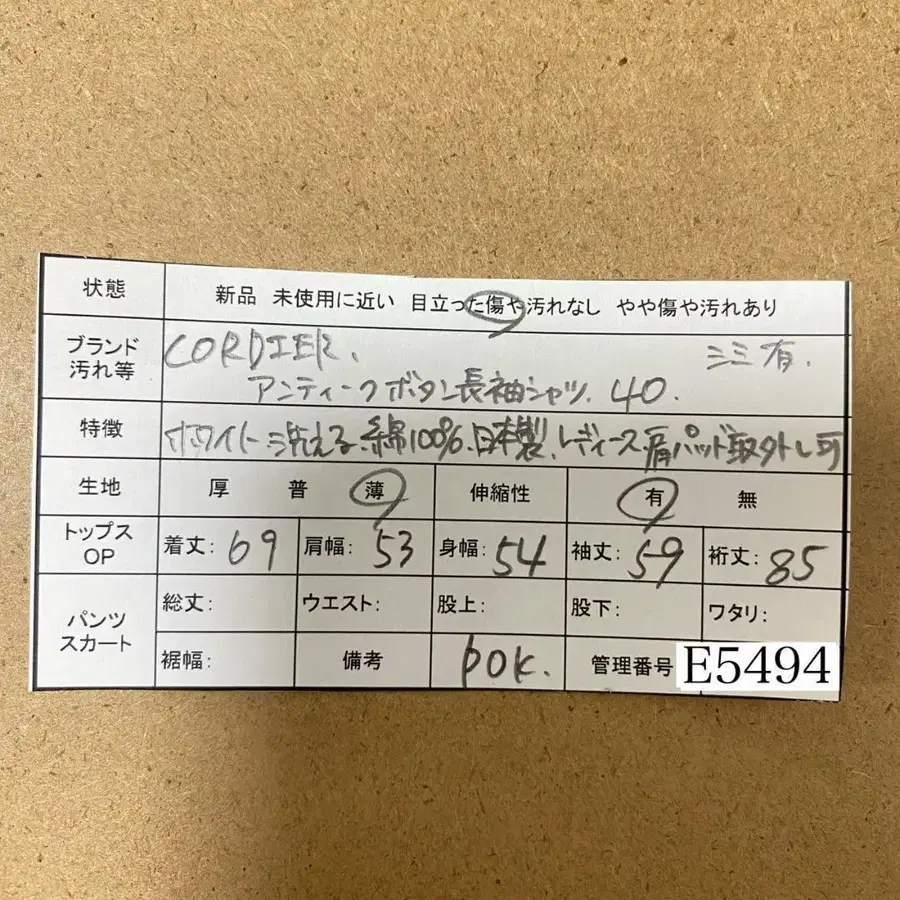 状態 新品 未使用に近い 目立った傷や汚れなし やや傷や汚れあり
ブランド CORDIER. シミ有.
汚れ等 アンティークボタン長袖シャツ. 40.
特徴 ホワイト 洗える、綿100%、日本製、レディース 肩パッド取外し可
生地 厚 普 薄 伸縮性 有 無
トップス OP 着丈: 69 肩幅: 53 身幅: 54 袖丈: 59 裄丈: 85
パンツ スカート 総丈: ウエスト: 股上: 股下: ワタリ:
裾幅: 備考 POK. 管理番号 E5494